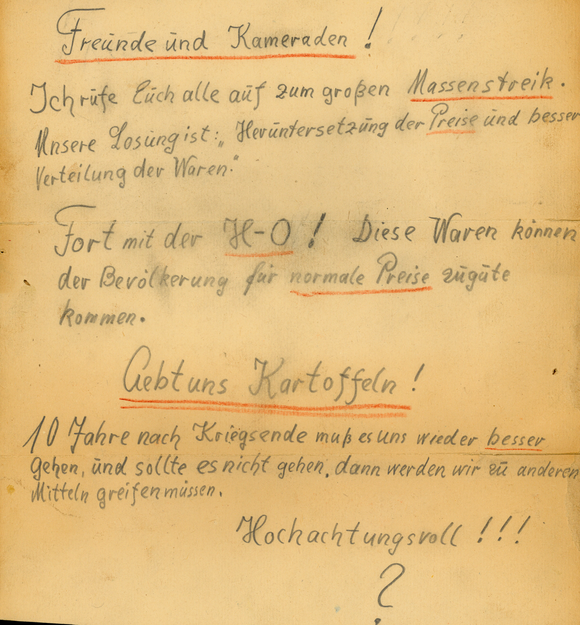 Freunde und Kameraden!
Ich rufe Euch alle auf zum großen Massenstreik.
Unsere Losung ist: „Heruntersetzung der Preise und besser
Verteilung der Waren."
Fort mit der H-O! Diese Waren können
der Bevölkerung für normale Preise zugute
kommen.
Gebt uns Kartoffeln!
10 Jahre nach Kriegsende muß es uns wieder besser
gehen, und sollte es nicht gehen, dann werden wir zu anderen
Mitteln greifen müssen.
Hochachtungsvoll!!!
?